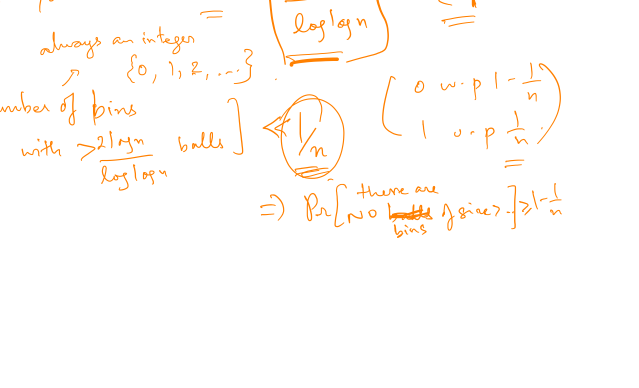 log log n
always an integer
{0, 1, 2, ...} .
number of bins
with > 2 log n / log log n balls ] << 1/n
( 0 w.p 1 - 1/n
1 w.p 1/n )
=> Pr[ there are
NO bins of size > .. ] ≥ 1 - 1/n